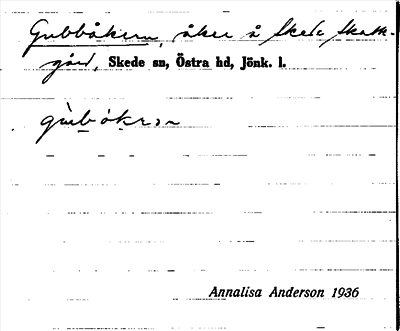 Gubbåkern, åker å Skede skatte-
gård, Skede sn, Östra hd, Jönk. l.
Annalisa Anderson 1936